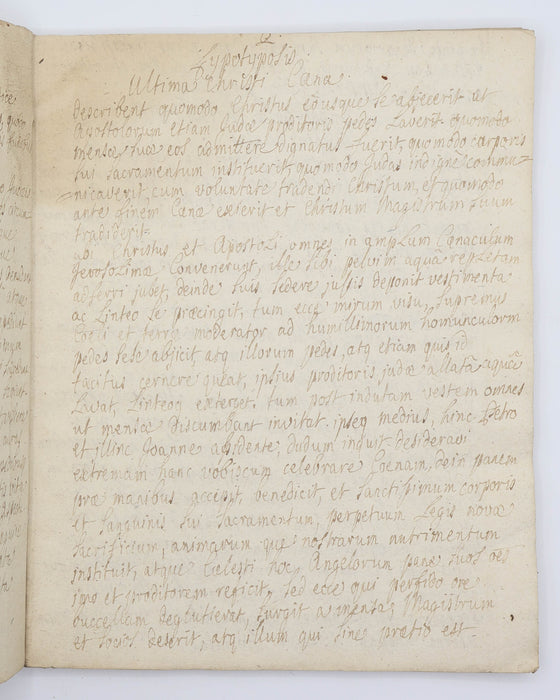 2
Hypotyposis
Ultimæ Christi Cænæ
describent quomodo Christus eousque se abjecerit ut
Apostolorum etiam Judæ proditoris pedes Laverit quomodo
mensæ suæ eos admittere dignatus fuerit, quomodo corporis
sui sacramentum instituerit, quomodo Judas indigne commu-
nicaverit cum voluntate tradendi Christum, et quomodo
ante finem Cænæ exierit et Christum Magistrum suum
tradiderit
ubi Christus et Apostoli omnes in amplum Cænaculum
Jerosolimæ Convenerunt, ille sibi pelvim aqua repletam
adferri jubet, deinde suis sedere jussis deponit vestimenta
ac Linteo se præcingit, tum ecce mirum visu, supremus
Cæli et terræ moderator ad humillimorum homunculorum
pedes sese abjicit atq illorum pedes, atq etiam quis id
tacitus cernere queat, ipsius proditoris judæ allata aqua
Lavat, Linteoq exterget. tum post indutam vestem omnes
ut mensæ discumbant invitat. ipseq medius, hinc Petro
et illinc Joanne assidente, dudum inquit desideravi
extremam hanc vobiscum celebrare Coenam, dein panem
præ manibus accepit, benedicit, et sanctissimum corporis
et sanguinis sui sacramentum, perpetuum Legis novæ
sacrificium, animarum que nostrarum nutrimentum
instituit, atque Cælesti hoc Angelorum pane suos oes
imo et proditorem reficit, sed ecce qui perfido ore
buccellam deglutierat, surgit a mensa, Magistrum
et socios deserit, atq illum qui sine pretio est